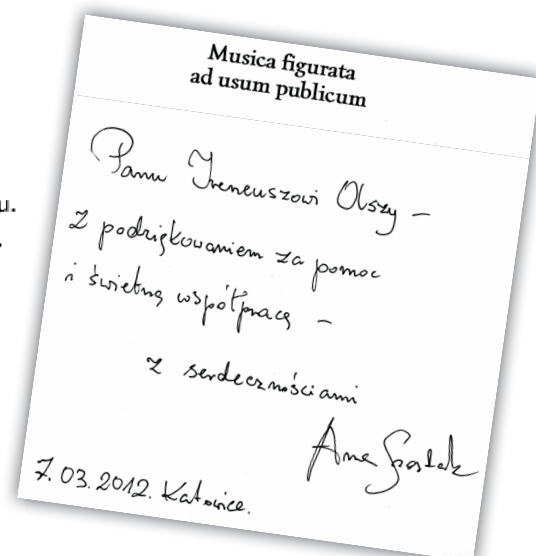 Musica figurata
ad usum publicum
Panu Ireneuszowi Olszy –
z podziękowaniem za pomoc
i świetną współpracę –
z serdecznościami
7.03.2012. Katowice.
u.